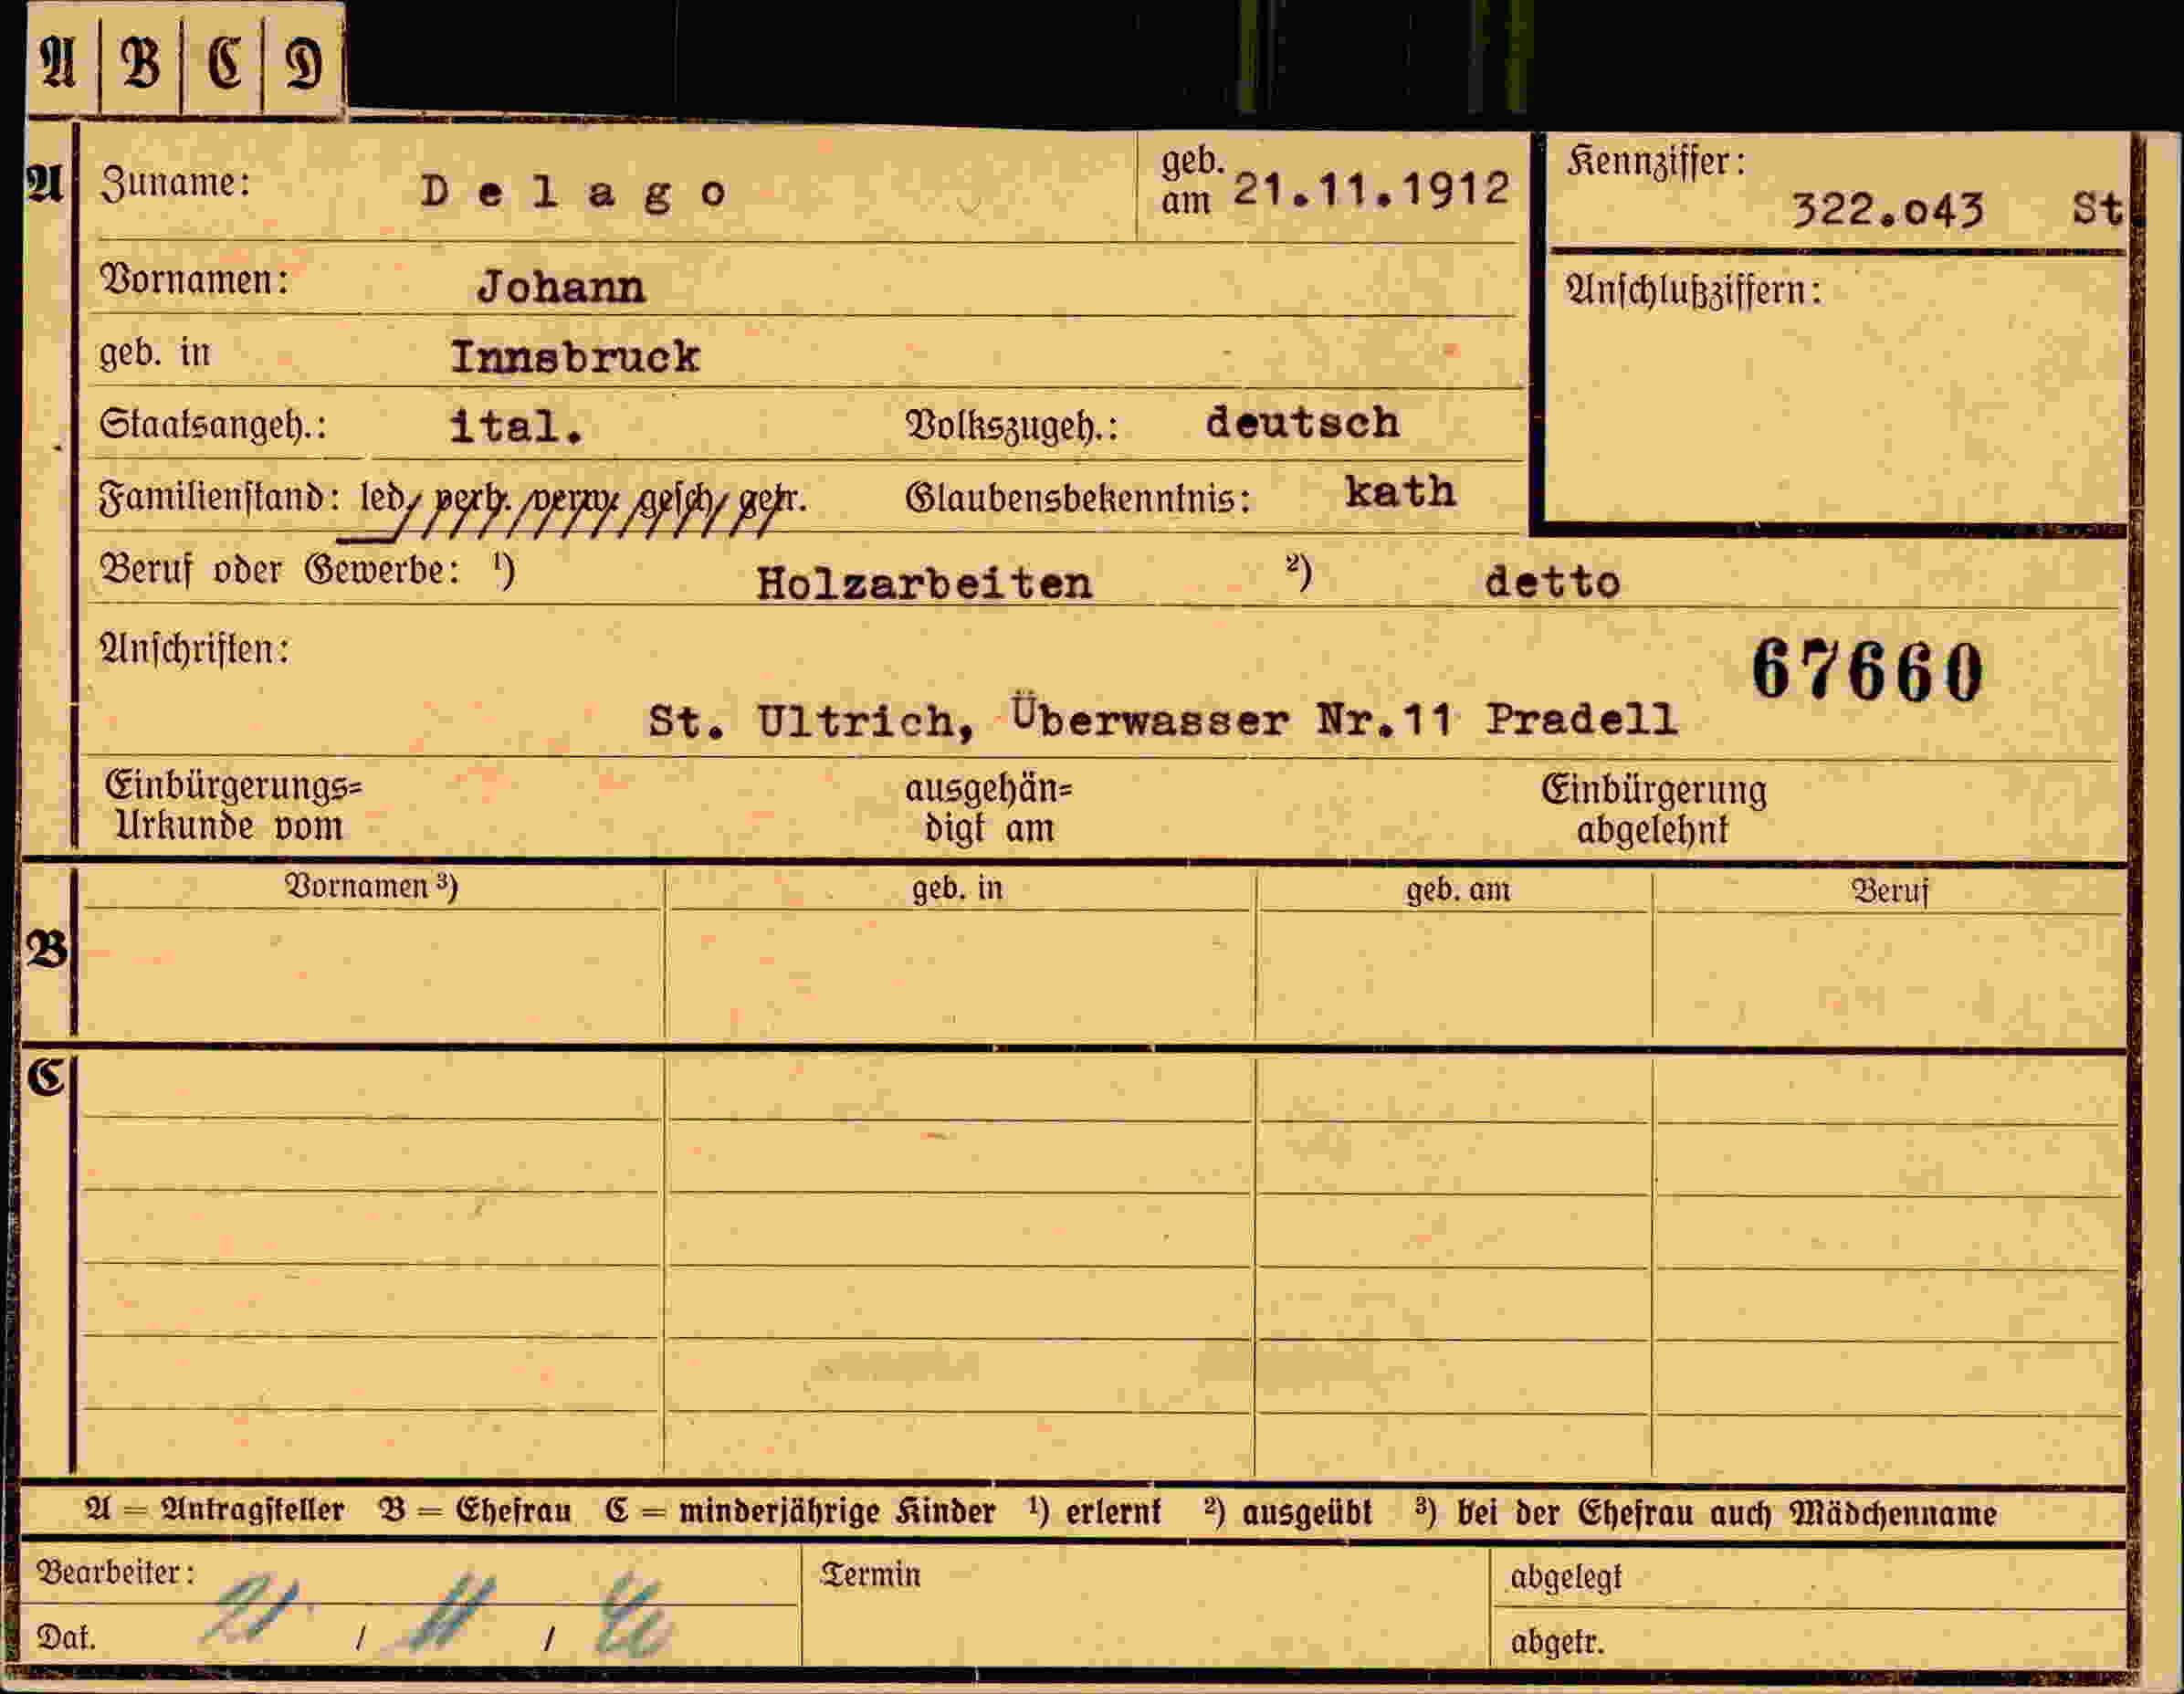 A B C D
A Zuname: Delago geb. am 21.11.1912 Kennziffer: 322.043 St
Vornamen: Johann Anschlußziffern:
geb. in Innsbruck
Staatsangeh.: ital. Volkszugeh.: deutsch
Familienstand: led/ verh. /verw. /gesch/ getr. Glaubensbekenntnis: kath
Beruf oder Gewerbe: ¹) Holzarbeiten ²) detto
Anschriften: 67660
St. Ultrich, Überwasser Nr.11 Pradell
Einbürgerungs= ausgehän= Einbürgerung
Urkunde vom digt am abgelehnt
Vornamen ³) geb. in geb. am Beruf
B
C
A = Antragsteller B = Ehefrau C = minderjährige Kinder ¹) erlernt ²) ausgeübt ³) bei der Ehefrau auch Mädchenname
Bearbeiter: Termin abgelegt
Dat. 21 / 11 / abgetr.